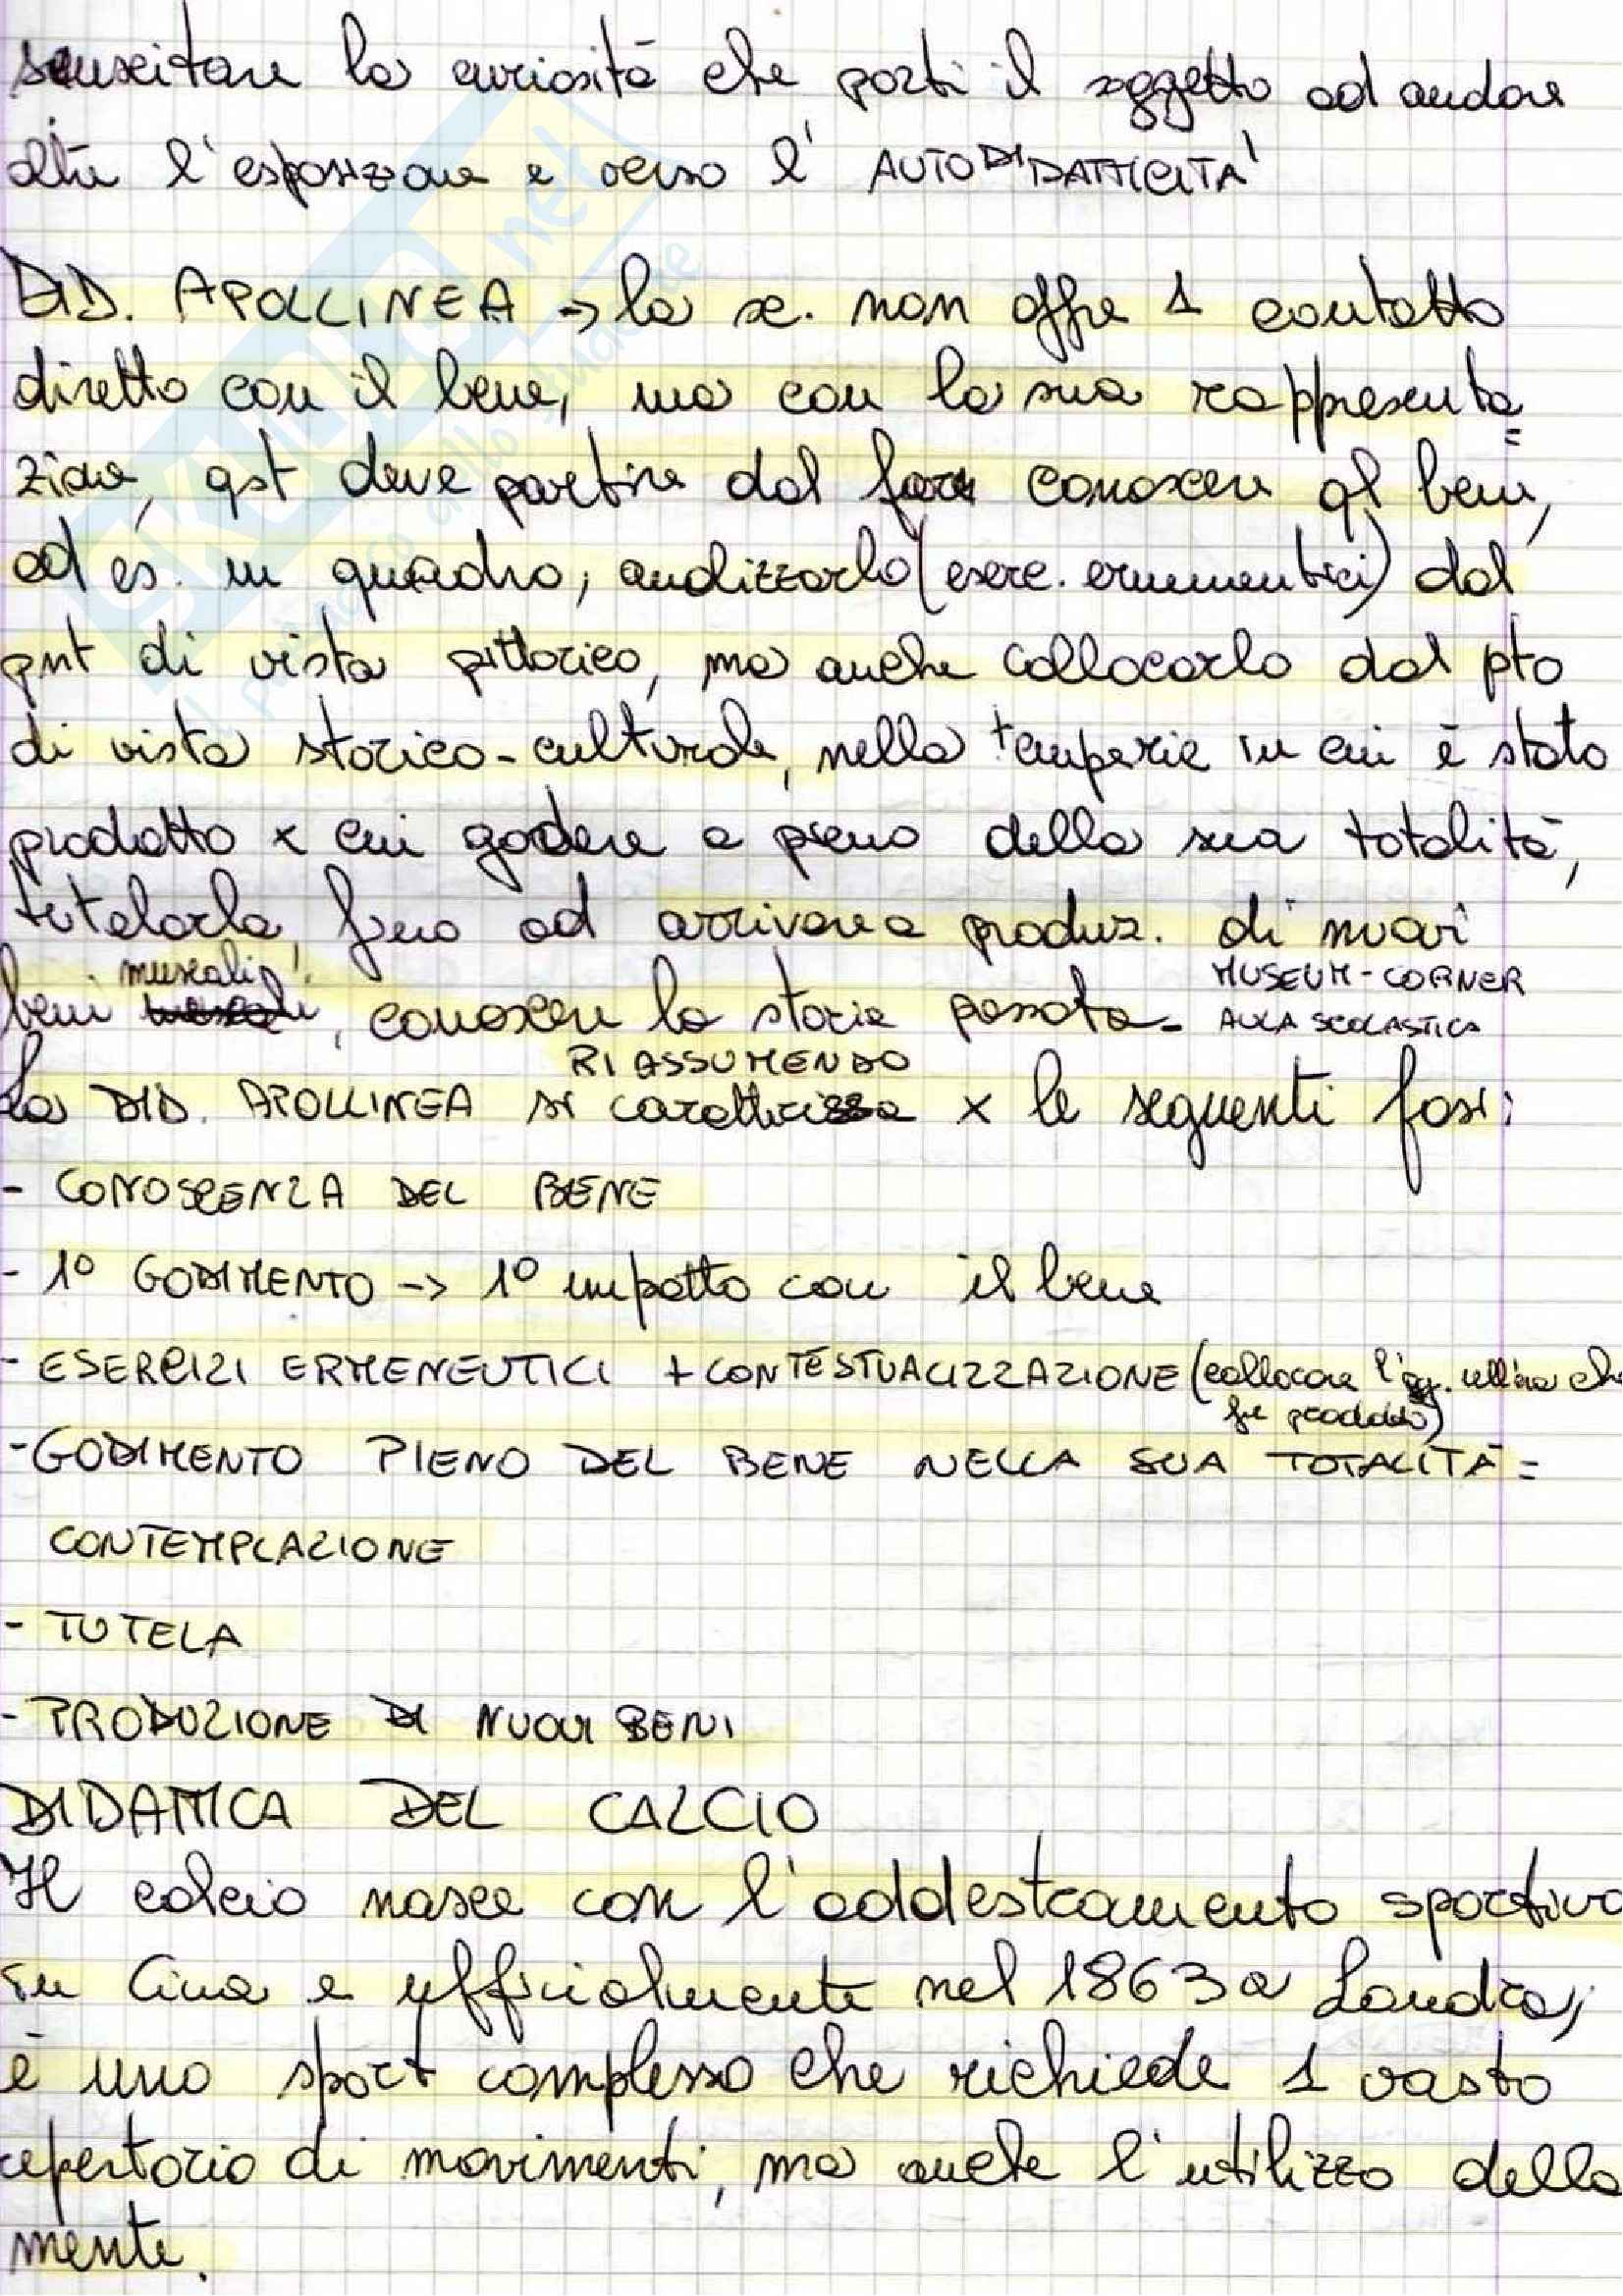 suscitare la curiosità che porti il soggetto ad andare
oltre l'esposizione e verso l'AUTODIDATTICITA'
DID. APOLLINEA -> la sc. non offre 1 contatto
diretto con il bene, ma con la sua rappresenta=
zione, qst deve partire dal far conoscere ql bene,
ad es. un quadro, analizzarlo (eserc. ermeneutici) dal
pnt di vista pittorico, ma anche collocarlo dal pto
di vista storico-culturale, nella temperie in cui è stato
prodotto x cui godere a pieno della sua totalità,
tutelarla, fino ad arrivare a produz. di nuovi
beni museali, conoscere la storia passata. MUSEUM-CORNER
AULA SCOLASTICA
RIASSUMENDO
La DID. APOLLINEA si caratterizza x le seguenti fasi:
- CONOSCENZA DEL BENE
- 1° GODIMENTO -> 1° impatto con il bene
- ESERCIZI ERMENEUTICI + CONTESTUALIZZAZIONE (collocare l'og. nell'era che
fu prodotto)
- GODIMENTO PIENO DEL BENE NELLA SUA TOTALITÀ =
CONTEMPLAZIONE
- TUTELA
- PRODUZIONE DI NUOVI BENI
DIDATTICA DEL CALCIO
Il calcio nasce con l'addestramento sportivo
in Cina e ufficialmente nel 1863 a Londra;
è uno sport complesso che richiede 1 vasto
repertorio di movimenti, ma anche l'utilizzo della
mente.